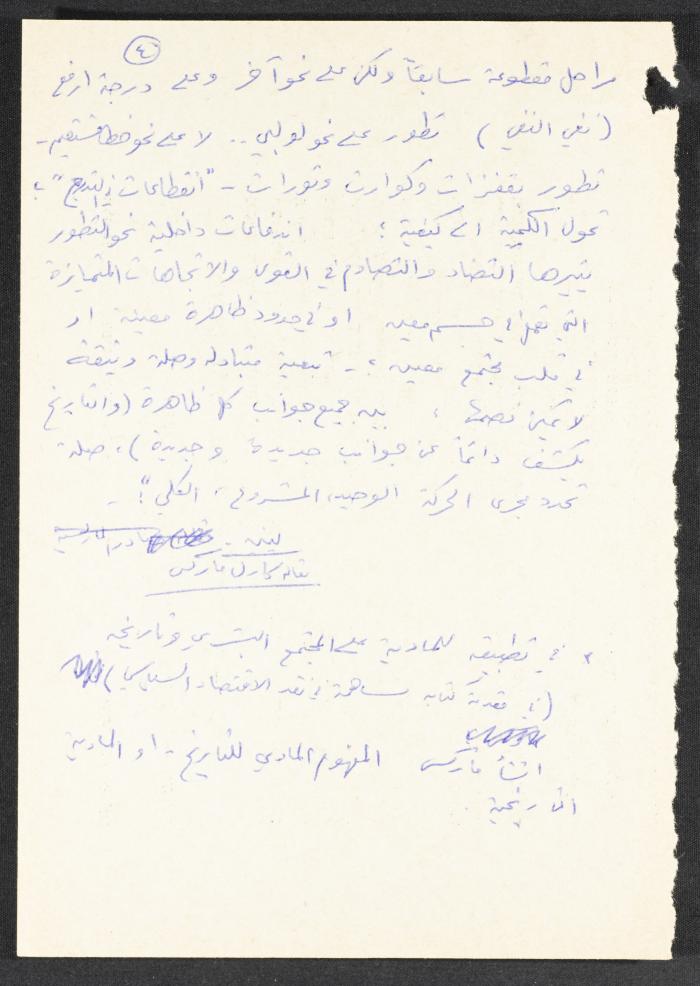 ٤
مراحل مقطوعة سابقاً ولكن على نحو آخر وعلى درجة ارفع
(نفي النفي) تطور على نحو لولبي .. لا على نحو خط مستقيم -
تطور بقفزات وكوارث وثورات - "انقطاعات في التدرج"؛
تحول الكمية الى كيفية؛ اندفاعات داخلية نحو التطور
يثيرها التضاد والتصادم في القوى والاتجاهات المتمايزة
التي تعمل في جسم معين او في حدود ظاهرة معينة او
في قلب مجتمع معين؛ - تبعية متبادلة وصلة وثيقة
لا يمكن فصمها، بين جميع جوانب كل ظاهرة (والتاريخ
يكشف دائماً عن جوانب جديدة وجديدة)، صلة
تحدد مجرى الحركة الوحيد، المشروع، الكلي"! -
لينين -
مقاله كارل ماركس
في تطبيقه للمادية على المجتمع البشري وتاريخه
(في مقدمة كتابه مساهمة في نقد الاقتصاد السياسي)
انشأ ماركس المفهوم المادي للتاريخ - او المادية
التاريخية.